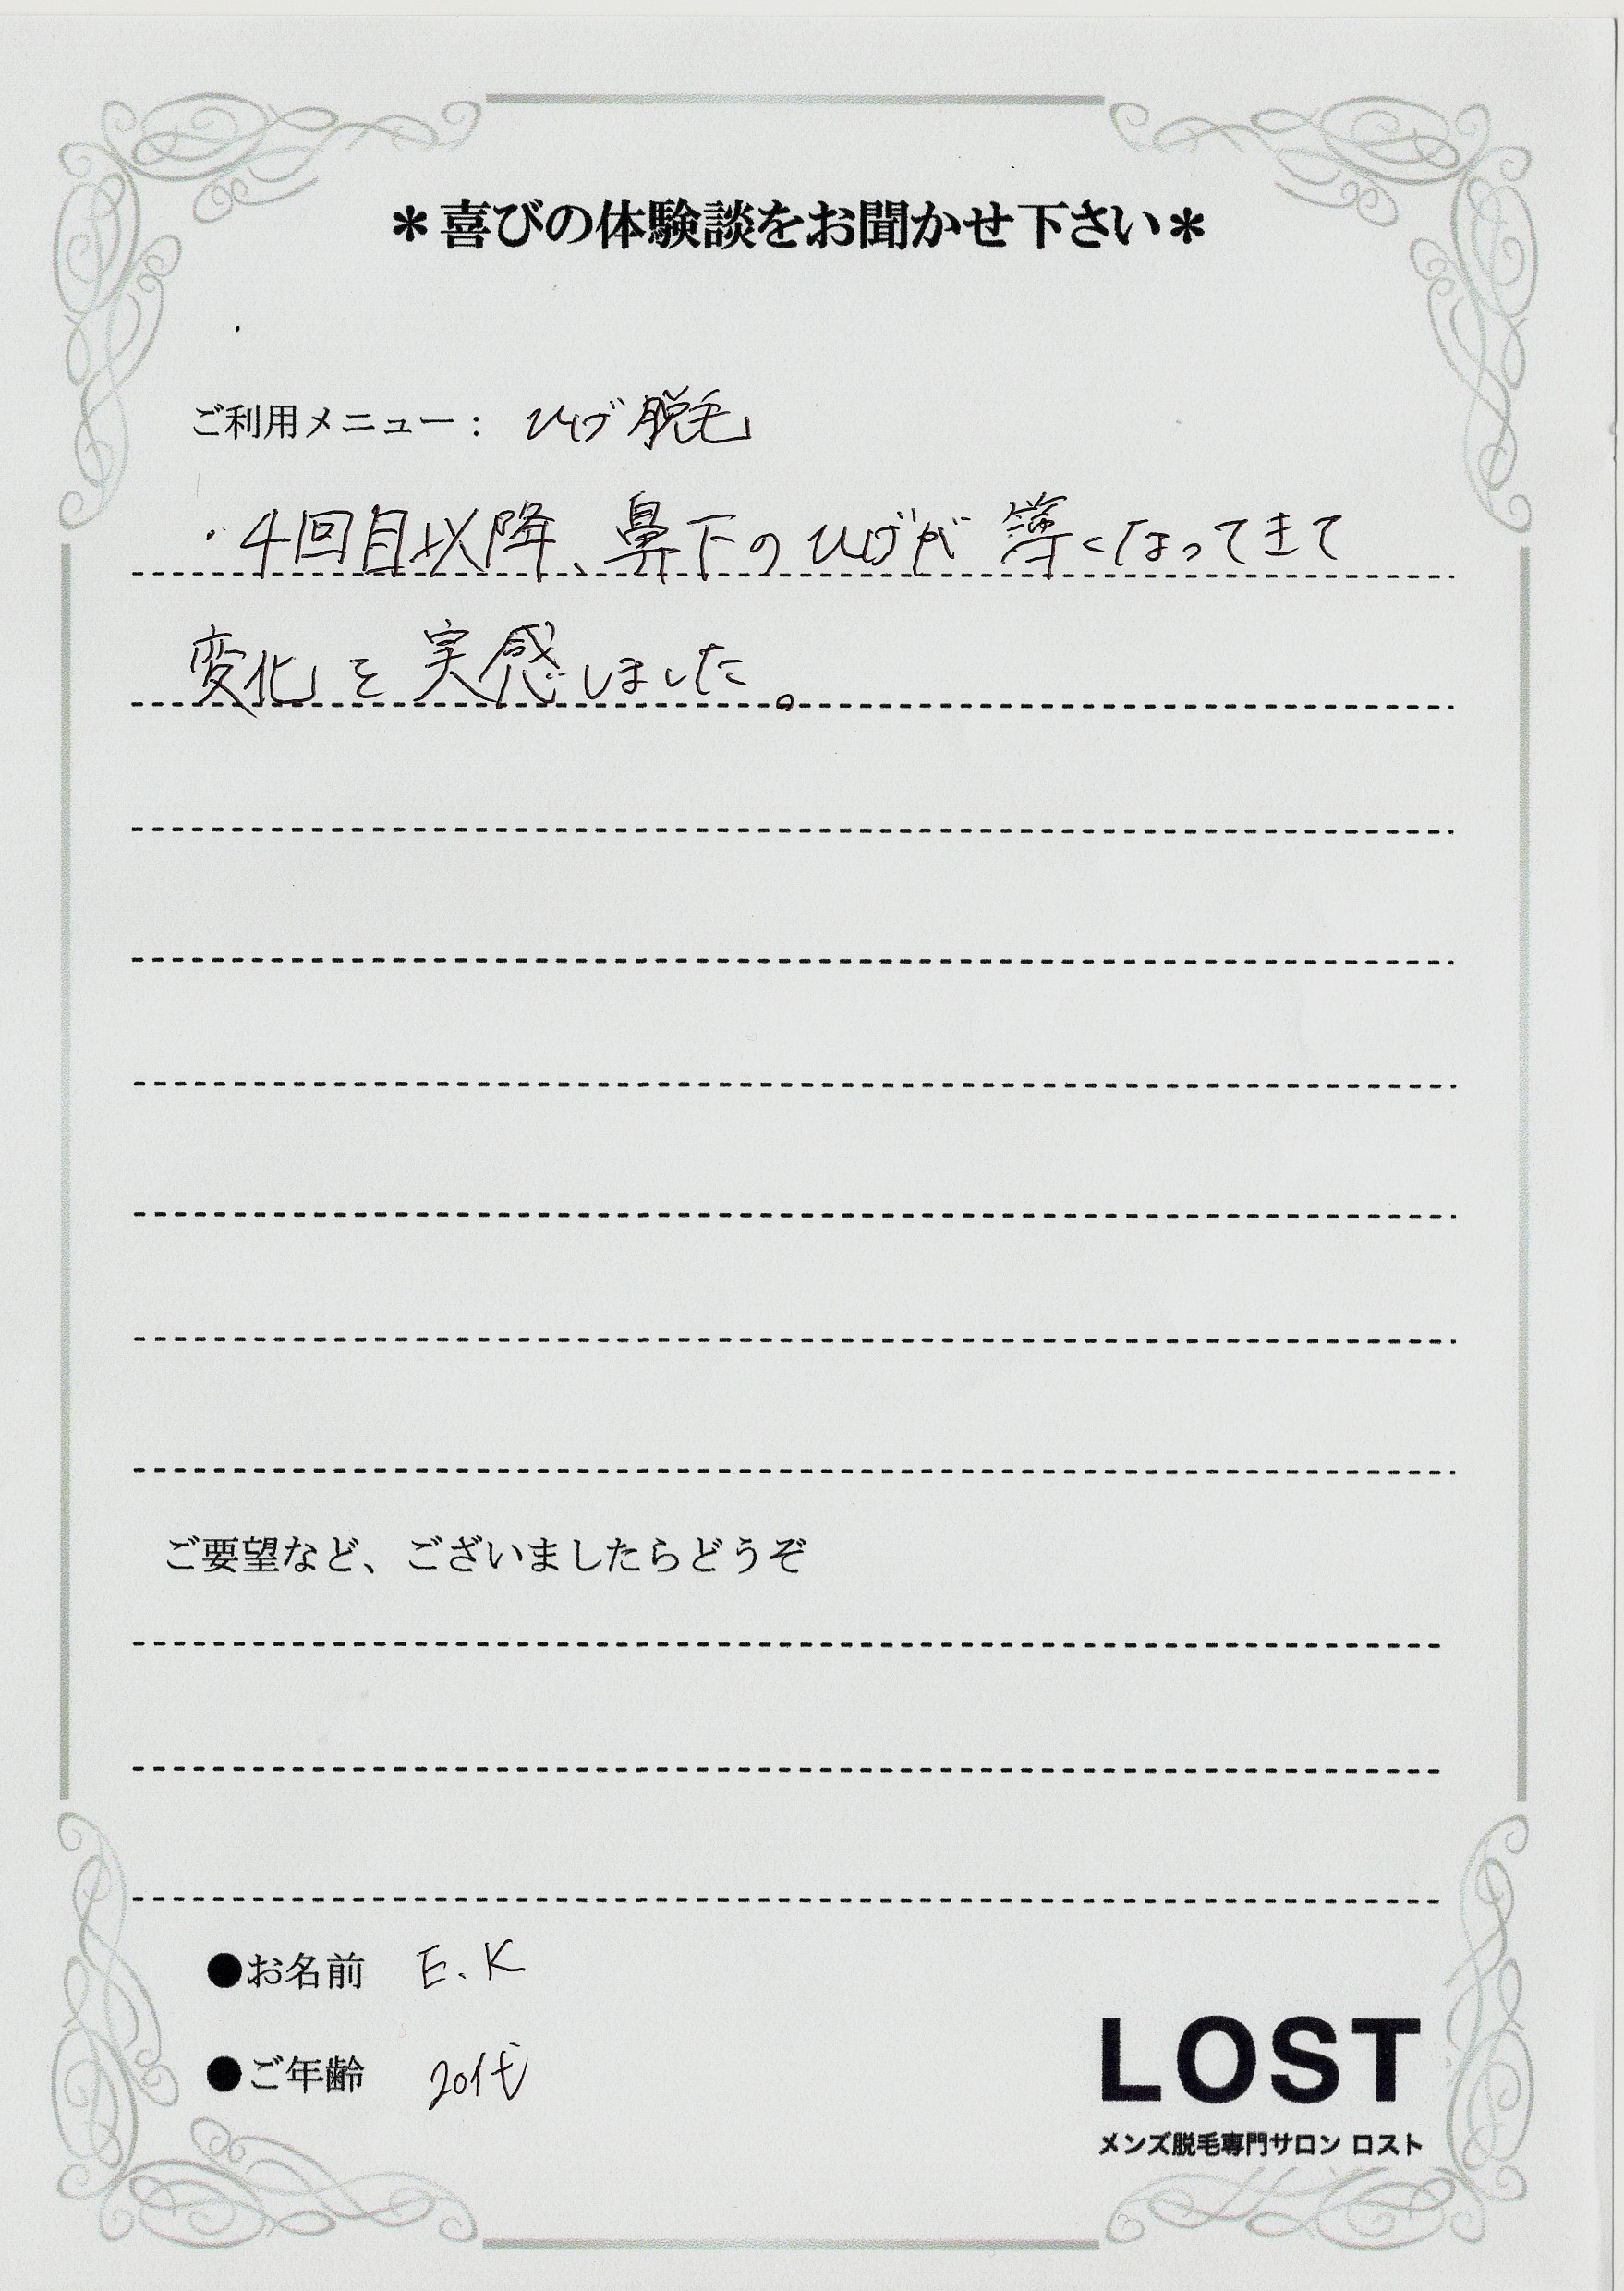 ＊喜びの体験談をお聞かせ下さい＊
ご利用メニュー： ひげ脱毛
・4回目以降、鼻下のひげが薄くなってきて
変化を実感しました。
ご要望など、ございましたらどうぞ
●お名前 E.K
●ご年齢 20代
LOST
メンズ脱毛専門サロン ロスト